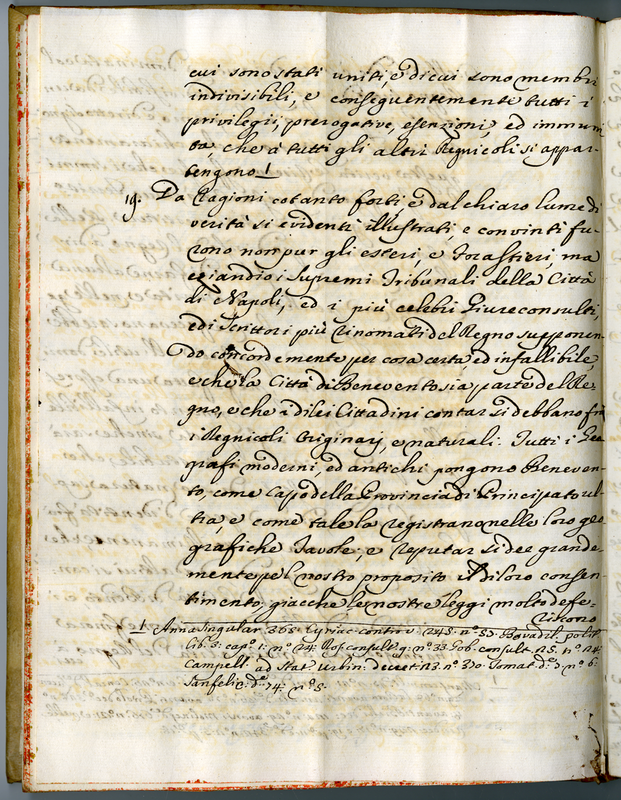 cui sono stati uniti, e di cui sono membri
indivisibili, e conseguentemente tutti i
privilegii, prerogative, esenzioni, ed immuni
tà, che a tutti gli altri Regnicoli si appar-
tengono 1
19. Da Ragioni cotanto forti e dal chiaro lume di
verità si evidenti illustrati, e convinti fu-
rono non pur gli esteri, e Forastieri, ma
eziandio i Supremi Tribunali della Città
di Napoli, ed i più celebri Giureconsulti,
ed i Scrittori più rinomati del Regno supponen
do concordemente per cosa certa, ed infallibile,
e che la Città di Benevento sia parte del Re-
gno, e che i di lei Cittadini contar si debbano frà
i Regnicoli Originarj, e naturali. Tutti i Geo
grafi moderni, ed antichi pongono Beneven-
to, come Capo della Provincia di Principato ul-
tra, e come tale la registrano nelle loro geo
grafiche Tavole; e reputar si dee grande-
mente pel nostro proposito il di loro consen-
timento; giacche le nostre leggi molto defe-
riscono
1. Anna singular. 365. Cyriac. controv. 245. nº 53. Bovadil. polit.
lib. 3. cap. 1. nº 24. Ros. consult. 9. nº 33. Gob. consult. 25. nº 24.
Campell. ad Stat. Urbin. decret. 123. nº 370. Tomat. dº. 3. nº 6.
Sanfelic. dº. 74. nº 5.